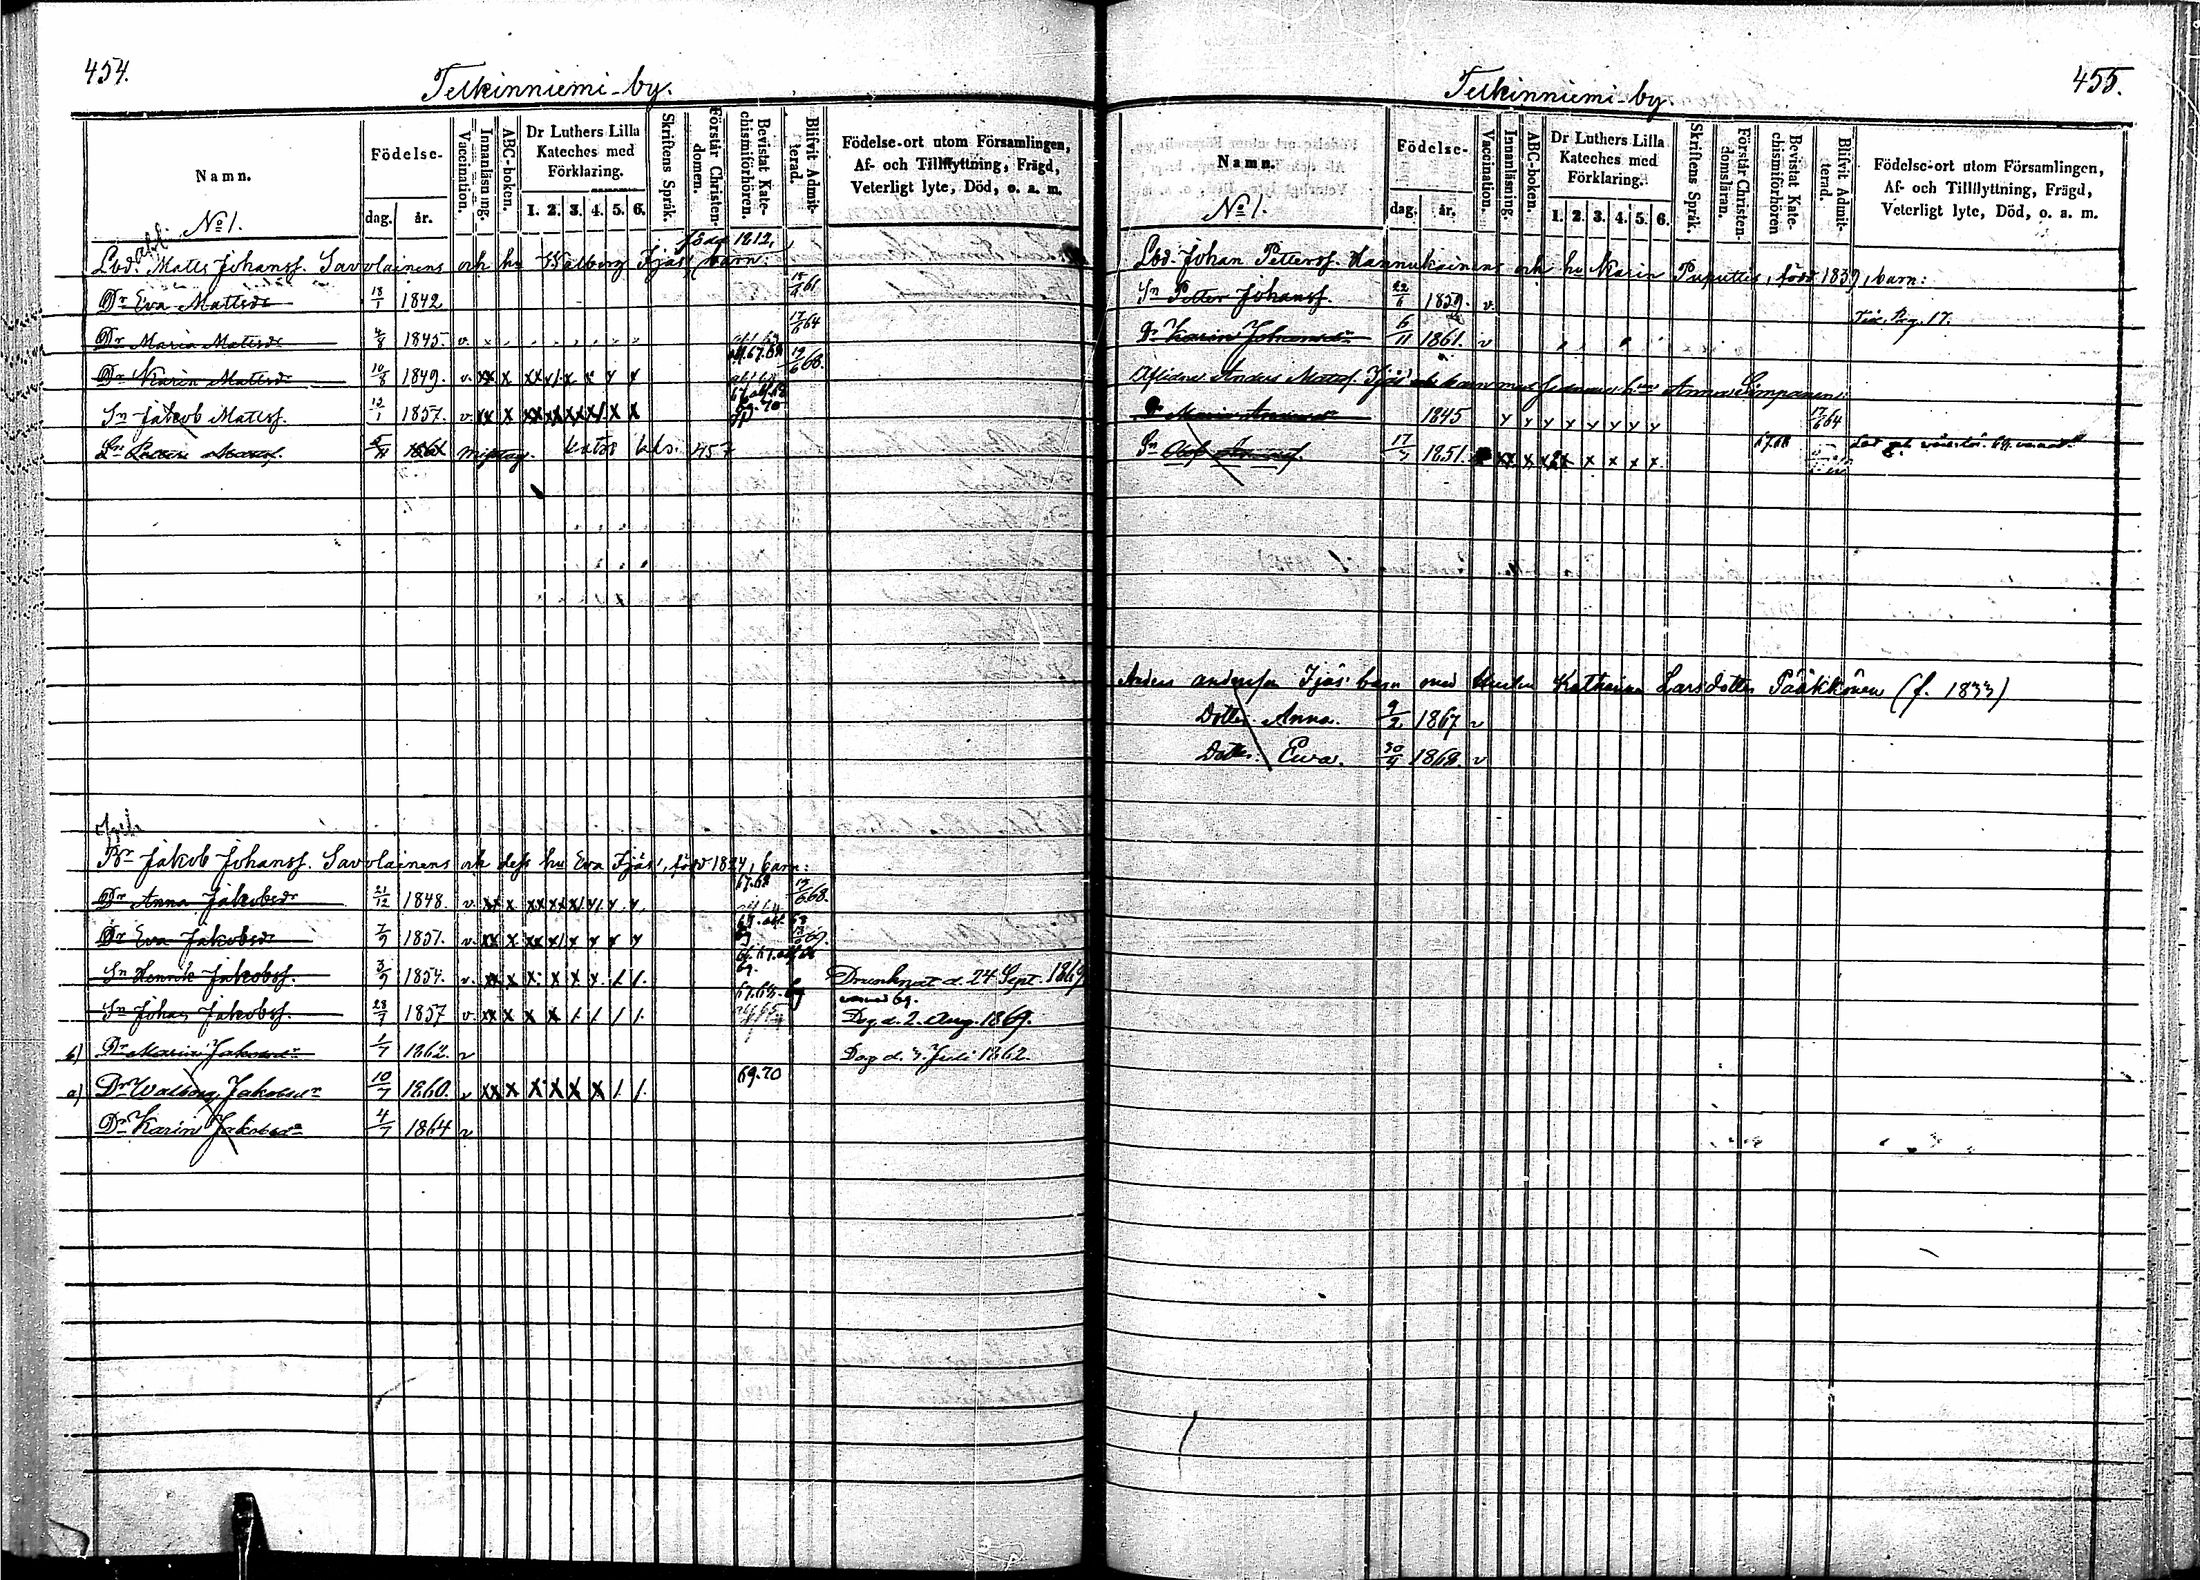 454.
Telkinniemi-by.
Namn.
Födelse-
dag. år.
Vaccination.
Innanläsning.
ABC-boken.
Dr Luthers Lilla Kateches med Förklaring.
1. 2. 3. 4. 5. 6.
Skriftens Språk.
Förstår Christendomen.
Bevistat Katechismiförhören.
Blifvit Admitterad.
Födelse-ort utom Församlingen, Af- och Tillflyttning, Frägd, Veterligt lyte, Död, o. a. m.
No 1.
Lbd. Matts Johansf. Savolainens och hu Walborg Ijäs' född 1812, barn:
Dr Eva Mattsdr 18/1 1842 61
Dr Maria Mattsdr 4/8 1845. v. 64
Dr Karin Mattsdr 10/8 1849. v. xx x 67.68 68.
Sn Jakob Mattsf. 12/1 1857. v. xx x
Sn Petter Mattsf. 1861 misstag. katso kds. 457
Br Jakob Johansf. Savolainens och dess hu Eva Ijäs', född 1824, barn:
Dr Anna Jakobsdr 21/12 1848. v. xx x 67.68 68.
Dr Eva Jakobsdr 7/9 1851. v. xx x 69.
Sn Henrik Jakobsf. 3/9 1854. v. xx x Drunknat d. 24 Sept. 1869
Sn Johan Jakobsf. 28/7 1857 v. xx x 67.68. Dog d. 2. Aug. 1869.
b) Dr Maria Jakobsdr 1/7 1862. v Dog d. 3. Juli 1862.
a) Dr Walborg Jakobsdr 10/7 1860. v xx x 69.70
Dr Karin Jakobsdr 4/7 1864 v
455.
Telkinniemi-by
Namn.
Födelse-
dag. år.
Vaccination.
Innanläsning.
ABC-boken.
Dr Luthers Lilla Kateches med Förklaring.
1. 2. 3. 4. 5. 6.
Skriftens Språk.
Förstår Christendomsläran.
Bevistat Katechismiförhören
Blifvit Admitterad.
Födelse-ort utom Församlingen, Af- och Tillflyttning, Frägd, Veterligt lyte, Död, o. a. m.
No 1.
Lbd. Johan Pettersf. Hannukainens och hu Karin Puputtis, född 1839, barn:
Sn Petter Johansf. 22/6 1859. v.
Dr Karin Johansdr 6/11 1861. v
Aflidne Anders Matsf. Ijäs' barn med hu Anna Simpanens:
Dr Maria Andersdr 1845 64
Sn 17/7 1851. 67.68
Anders Andersson Ijäs' barn med hustru Katharina Larsdotter Pääkkönen (f. 1833)
Dotter Anna. 9/2 1867 v
Dotter: Ewa. 30/9 1868. v